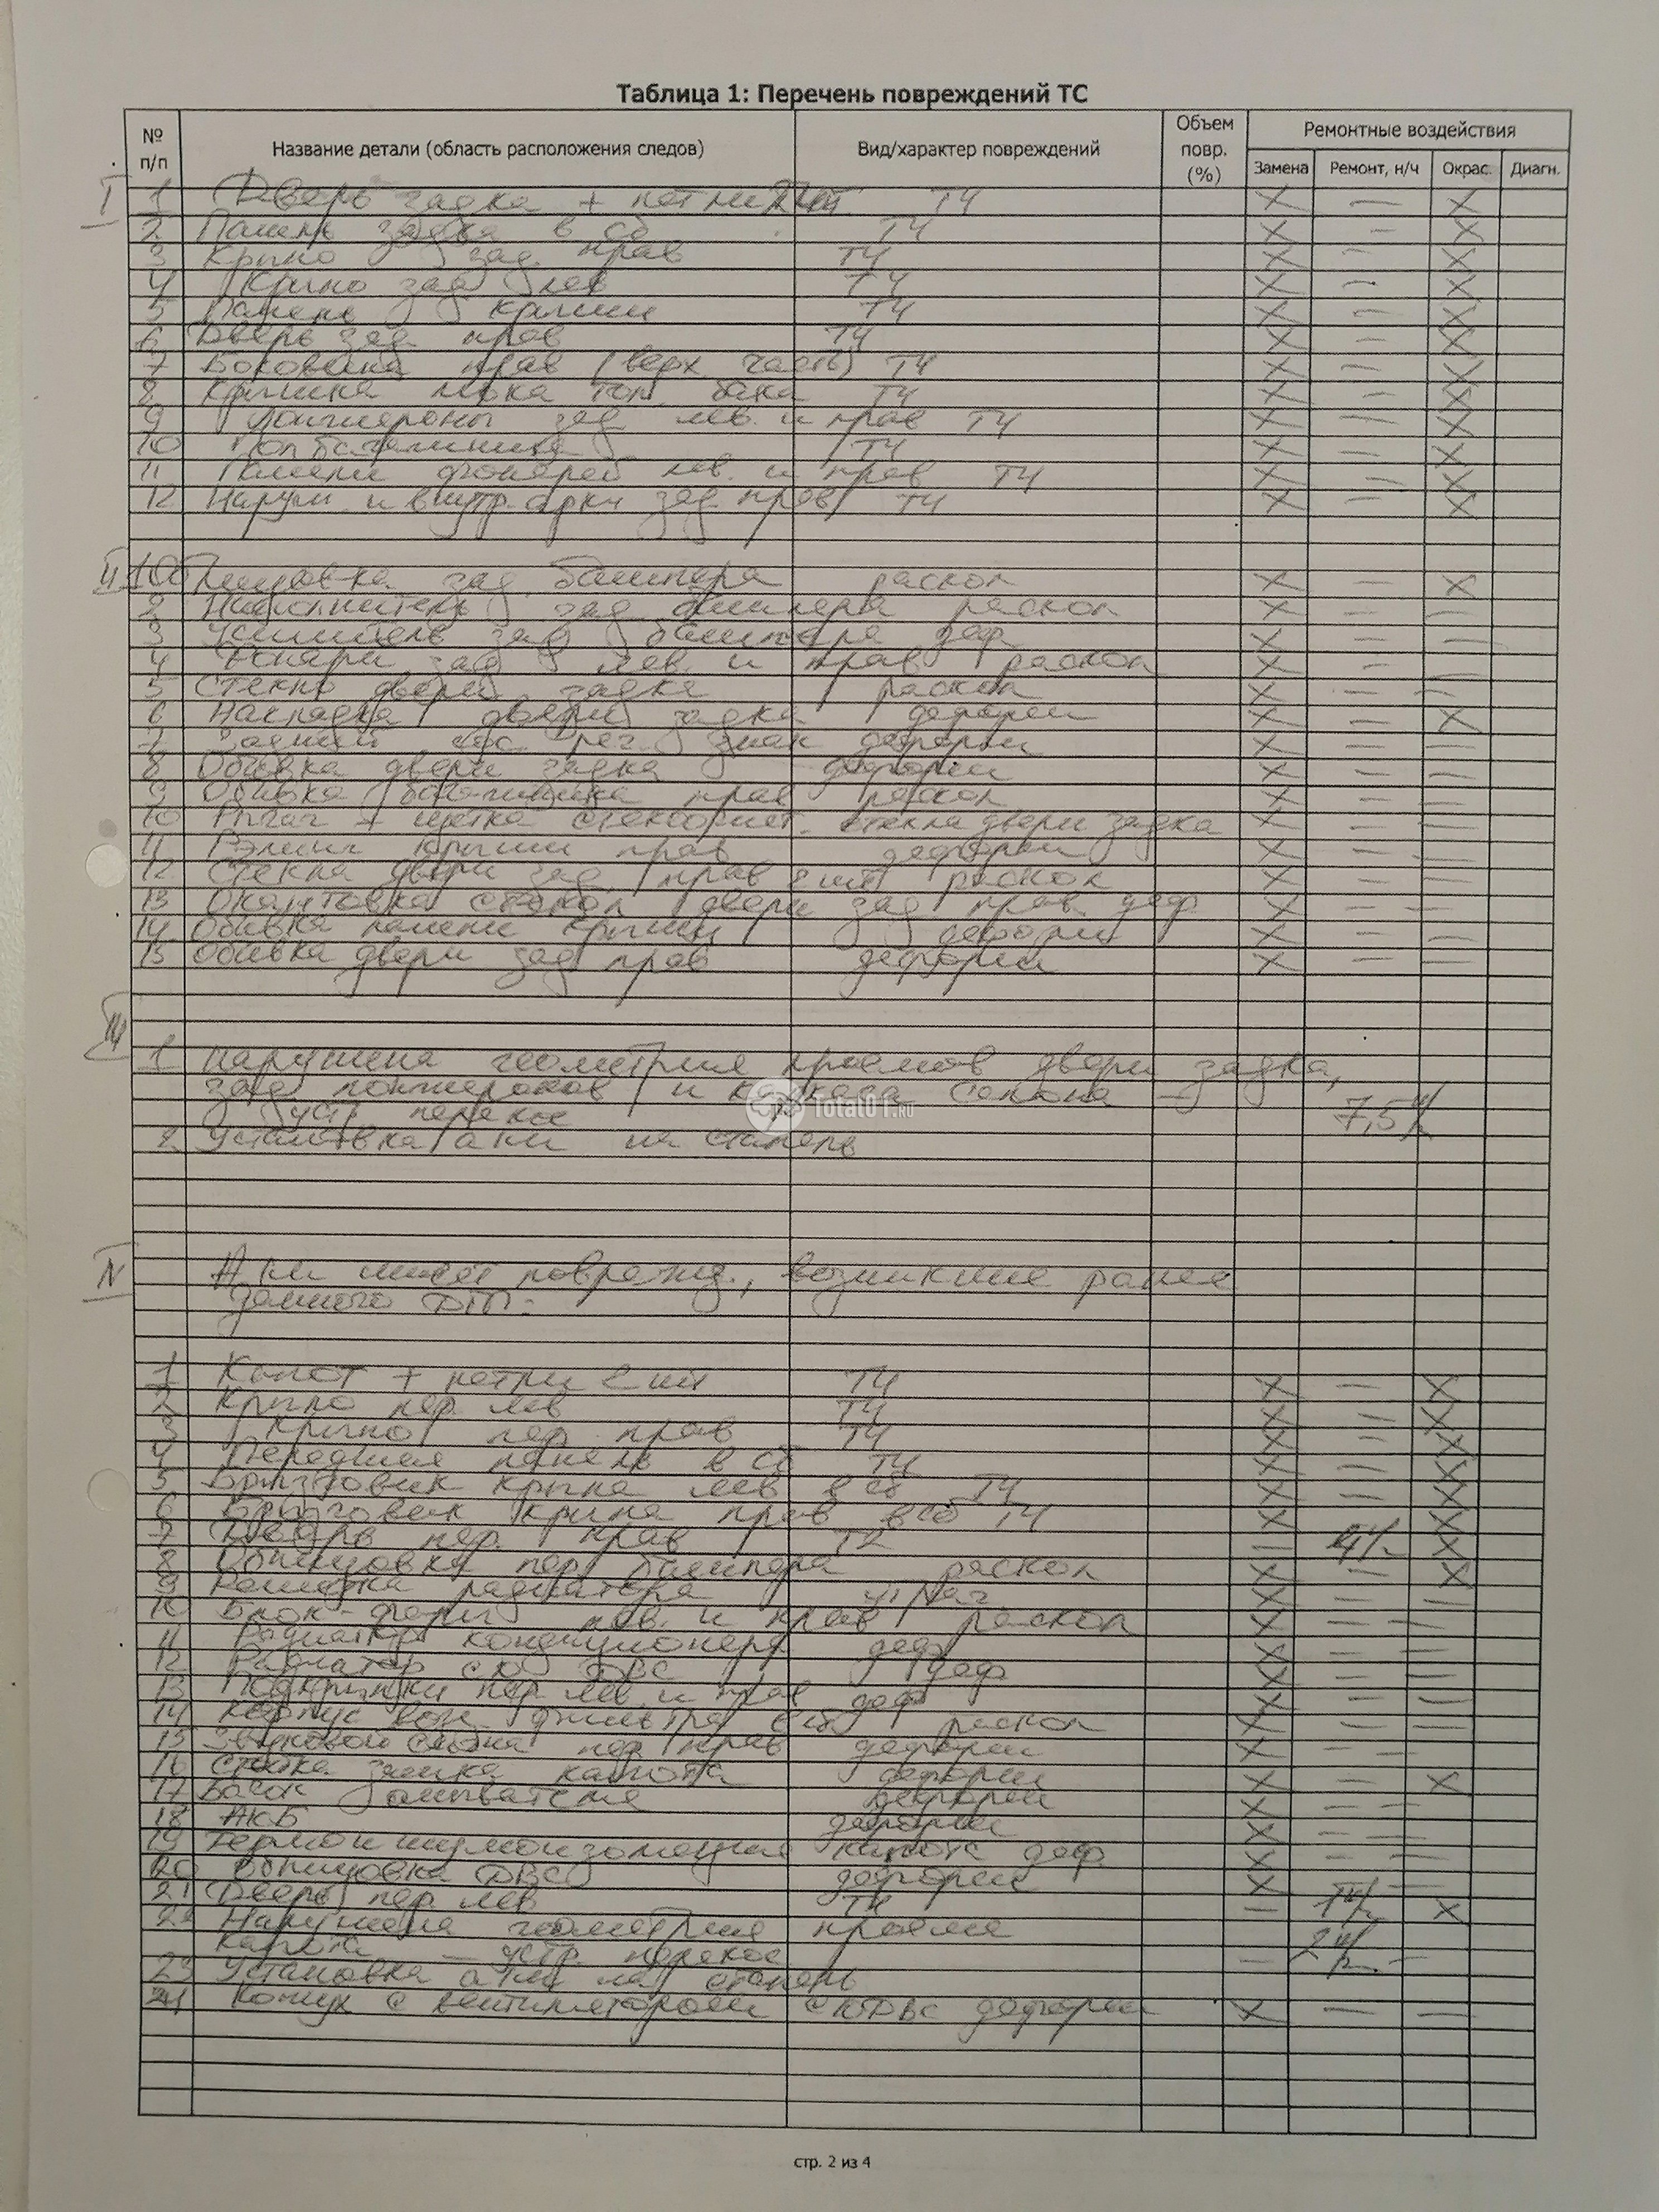 Таблица 1: Перечень повреждений ТС
№ п/п Название детали (область расположения следов) Вид/характер повреждений Объем повр. (%) Ремонтные воздействия
Замена Ремонт, н/ч Окрас. Диагн.
I 1 Дверь задка + петли 2 шт. Т4 X — X
2 Панель задка в сб Т4 X — X
3 Крыло зад. прав Т4 X — X
4 Крыло зад лев Т4 X — X
5 Панель крыши Т4 X — X
6 Дверь зад. прав Т4 X — X
7 Боковина прав (верх часть) Т4 X — X
8 Крышка люка топ. бака Т4 X — X
9 Лонжероны зад лев. и прав Т4 X — X
10 Пол багажника Т4 X — X
11 Панели фонарей лев. и прав Т4 X — X
12 Наружн. и внутр. арки зад. прав Т4 X — X
II 1 Облицовка зад. бампера раскол X — X
2 Наполнитель зад бампера раскол X — —
3 Усилитель зад бампера деф X — —
4 Фонари зад лев. и прав раскол X — —
5 Стекло двери задка раскол X — —
6 Накладка двери задка деформ X — X
7 Задний гос. рег. знак деформ X — —
8 Обивка двери задка деформ X — —
9 Обивка багажника прав раскол X — —
10 Рычаг + щетка стеклоочист. стекла двери задка X — —
11 Рэлинг крыши прав деформ X — —
12 Стекла двери зад прав 2 шт раскол X — —
13 Окантовка стекол двери зад прав деф X — —
14 Обивка панели крыши деформ X — —
15 Обивка двери зад прав деформ X — —
III
1 нарушена геометрия проемов двери задка,
зад лонжеронов и каркаса салона —
устр перекос 7,5 н/ч
2 Установка а/м на стапель
Total01.RU
IV А/м имеет поврежд., возникшие ранее
данного ДТП:
1 Капот + петли 2 шт Т4 X — X
2 Крыло пер. лев Т4 X — X
3 Крыло пер прав Т4 X — X
4 Передняя панель в сб Т4 X — X
5 Брызговик крыла лев в сб Т4 X — X
6 Брызговик крыла прав в сб Т4 X — X
7 Дверь пер. прав Т2 — X
8 Облицовка пер бампера раскол X — X
9 Решетка радиатора X — —
10 Блок-фары лев. и прав раскол X — —
11 Радиатор кондиционера деф X — —
12 Радиатор СО ДВС деф X — —
13 Подкрылки пер лев. и прав деф X — —
14 Корпус воз. фильтра в сб раскол X — —
15 Звуковой сигнал пер прав деформ X — —
16 Стойка замка капота деформ X — X
17 Бачок омывателя деформ X — —
18 АКБ деформ X — —
19 Термошумоизоляция капота деф X — —
20 Облицовка ДВС деформ X —
21 Дверь пер лев — 1 н/ч X
22 Нарушена геометрия проема
капота — устр. перекос — 2 н/ч —
23 Установка а/м на стапель
24 Кожух с вентилятором СО ДВС деформ X — —
стр. 2 из 4